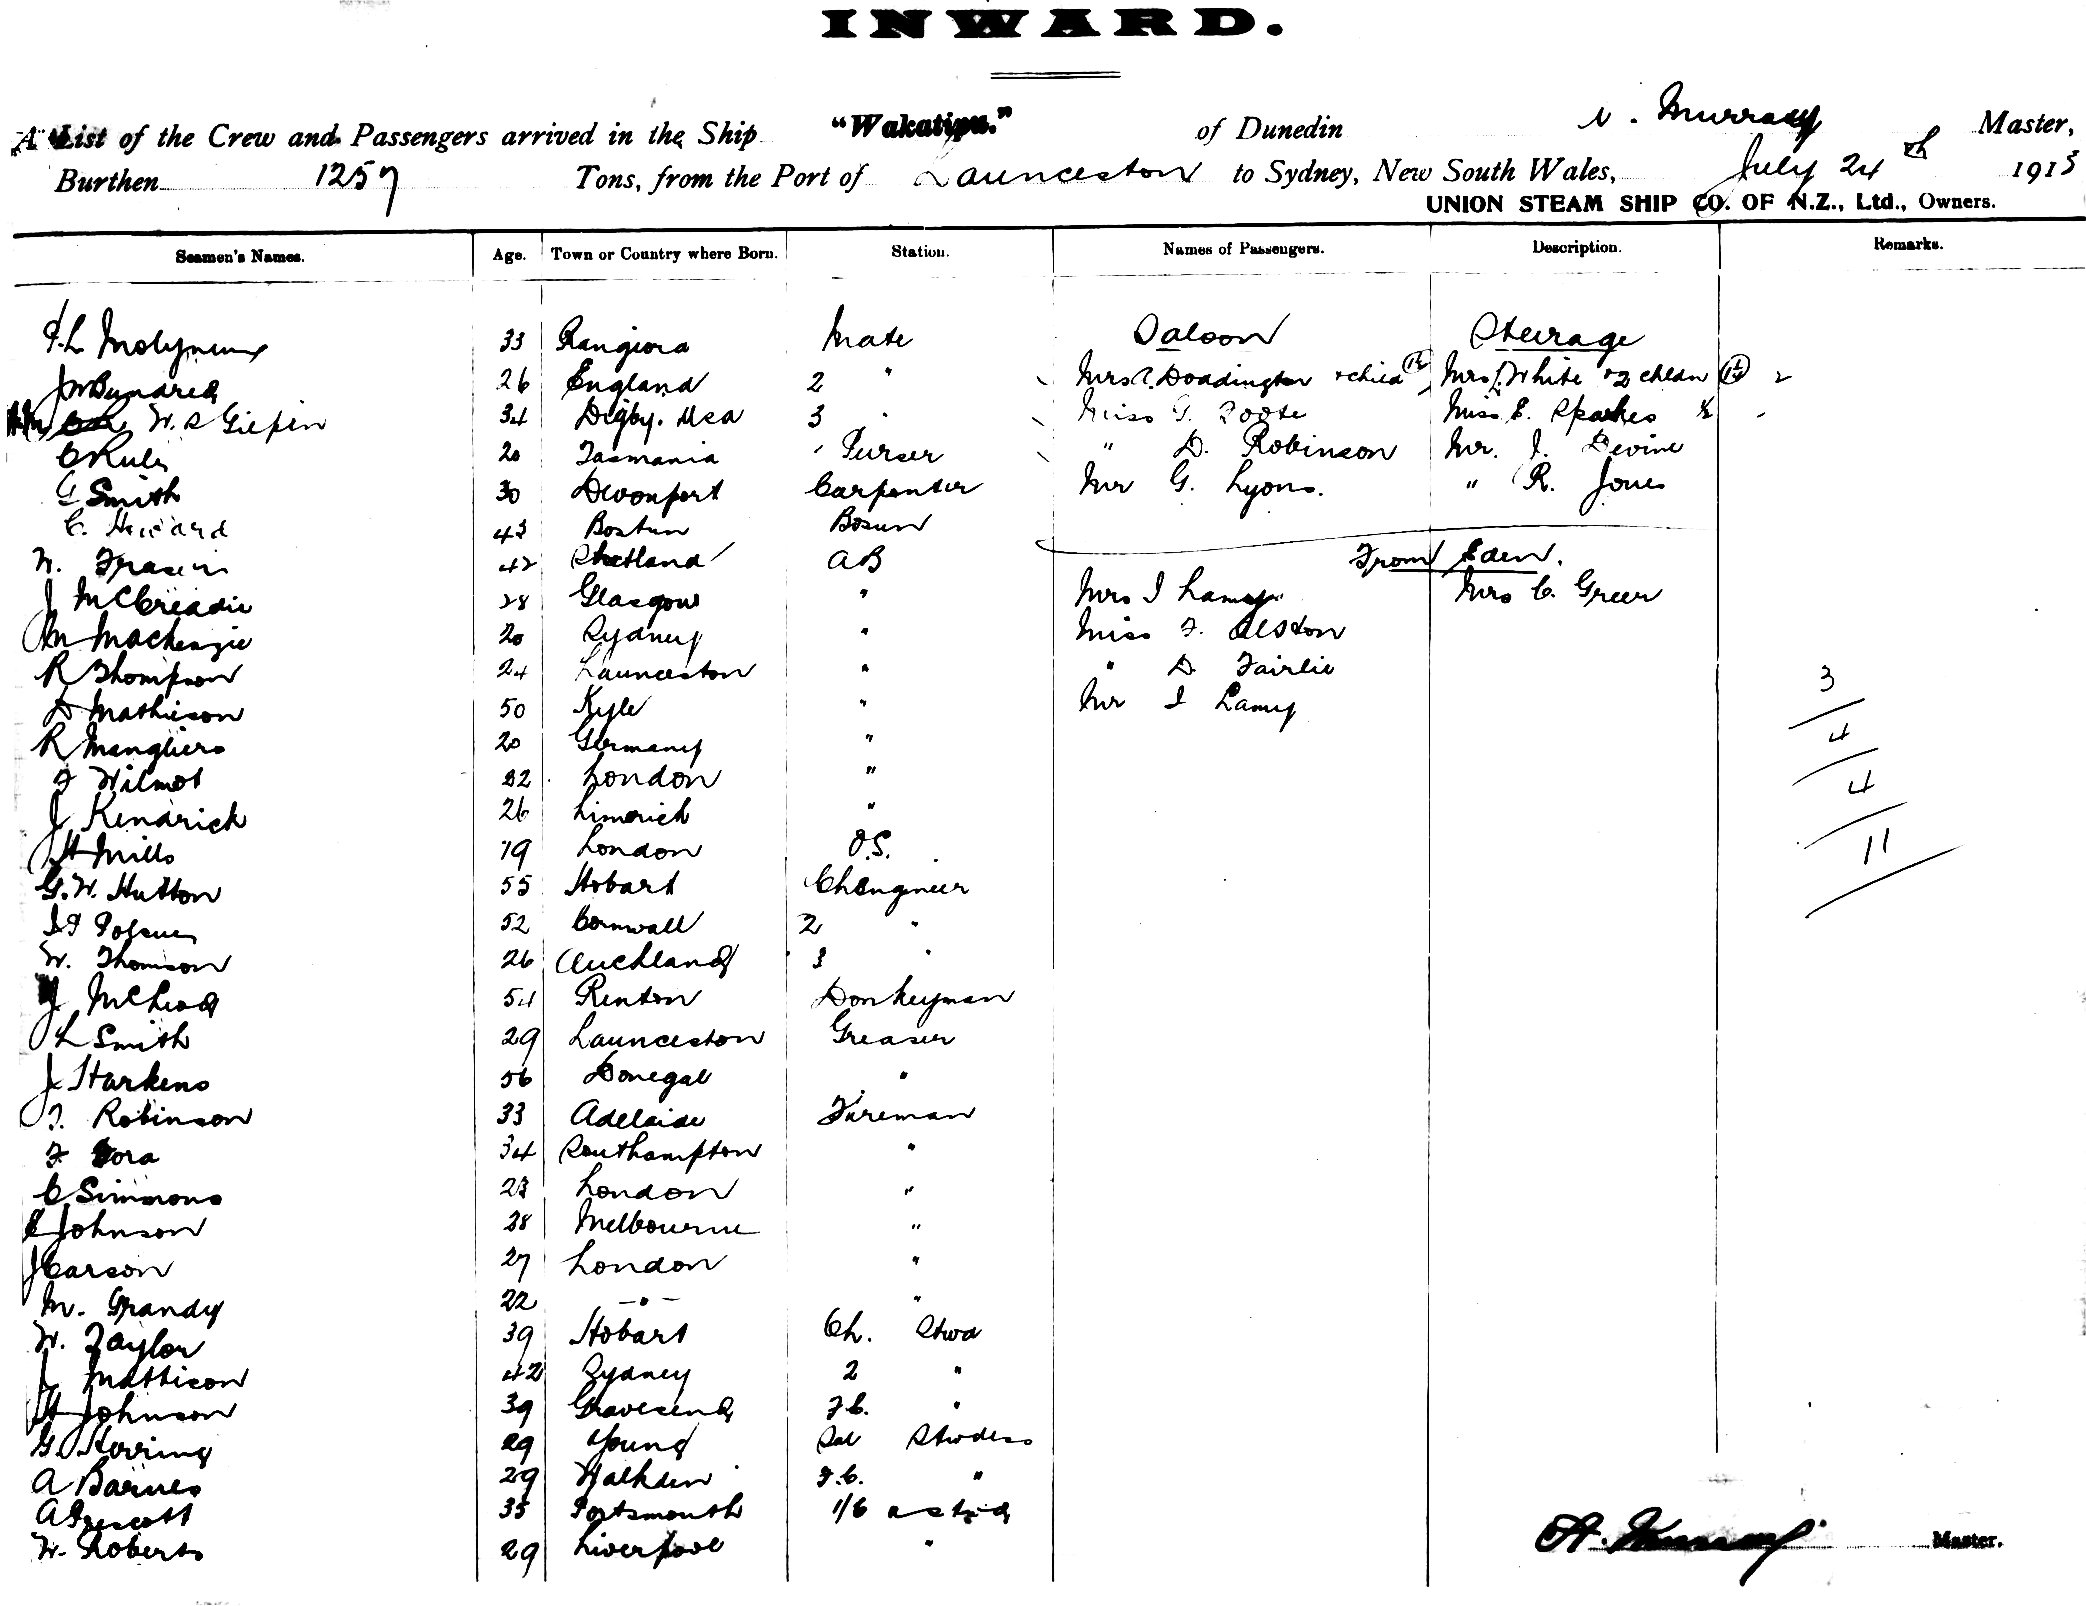 INWARD.
A List of the Crew and Passengers arrived in the Ship "Wakatipu." of Dunedin Murray Master,
Burthen 1257 Tons, from the Port of Launceston to Sydney, New South Wales, July 24th 1913
UNION STEAM SHIP CO. OF N.Z., Ltd., Owners.
Seamen's Names. Age. Town or Country where Born. Station. Names of Passengers. Description. Remarks.
33 Rangiora Mate Saloon Steerage
26 England 2 " Mrs Doddington & child Mrs White & 2 chldn
W. S Gilpin 34 Digby. 3 " Miss G. Foote Miss E. Sparkes
C Rule 20 Tasmania Purser " D. Robinson Mr. J. Devine
G Smith 30 Devonport Carpenter Mr G. Lyons. " R. Jones
C. Howard 43 Boston Bosun
W. Fraser 42 Shetland AB From Eden.
J McCreadie 28 Glasgow " Mrs J Lamy Mrs C. Greer
M Mackenzie 20 Sydney " Miss F. Alston
R Thompson 24 Launceston " " D Fairlie
D Mathieson 50 Kyle " Mr J Lamy
R Mengliers 20 Germany "
F Wilmot 32 London "
J Kendrick 26 Limerick "
H Mills 19 London O.S.
G. W. Hutton 55 Hobart Ch Engineer
52 Cornwall 2 "
W. Thomson 26 Auckland 3 "
J McLeod 54 Renton Donkeyman
L Smith 29 Launceston Greaser
J Harkens 56 Donegal "
T. Robinson 33 Adelaide Fireman
F Gora 34 Southampton "
C Simmons 23 London "
E Johnson 28 Melbourne "
J Carson 27 London "
M. Grandy 22 - " - "
W. Taylor 39 Hobart Ch. Stwd
J Mattison 42 Sydney 2 "
H Johnson 39 Gravesend F.C. "
G. Herring 29 Young Sal Stwdess
A Barnes 29 Walkden F.C. "
A Prescott 35 Portsmouth 1/6 a stwd
W. Roberts 29 Liverpool "
3
4
4
11
A. Murray Master.